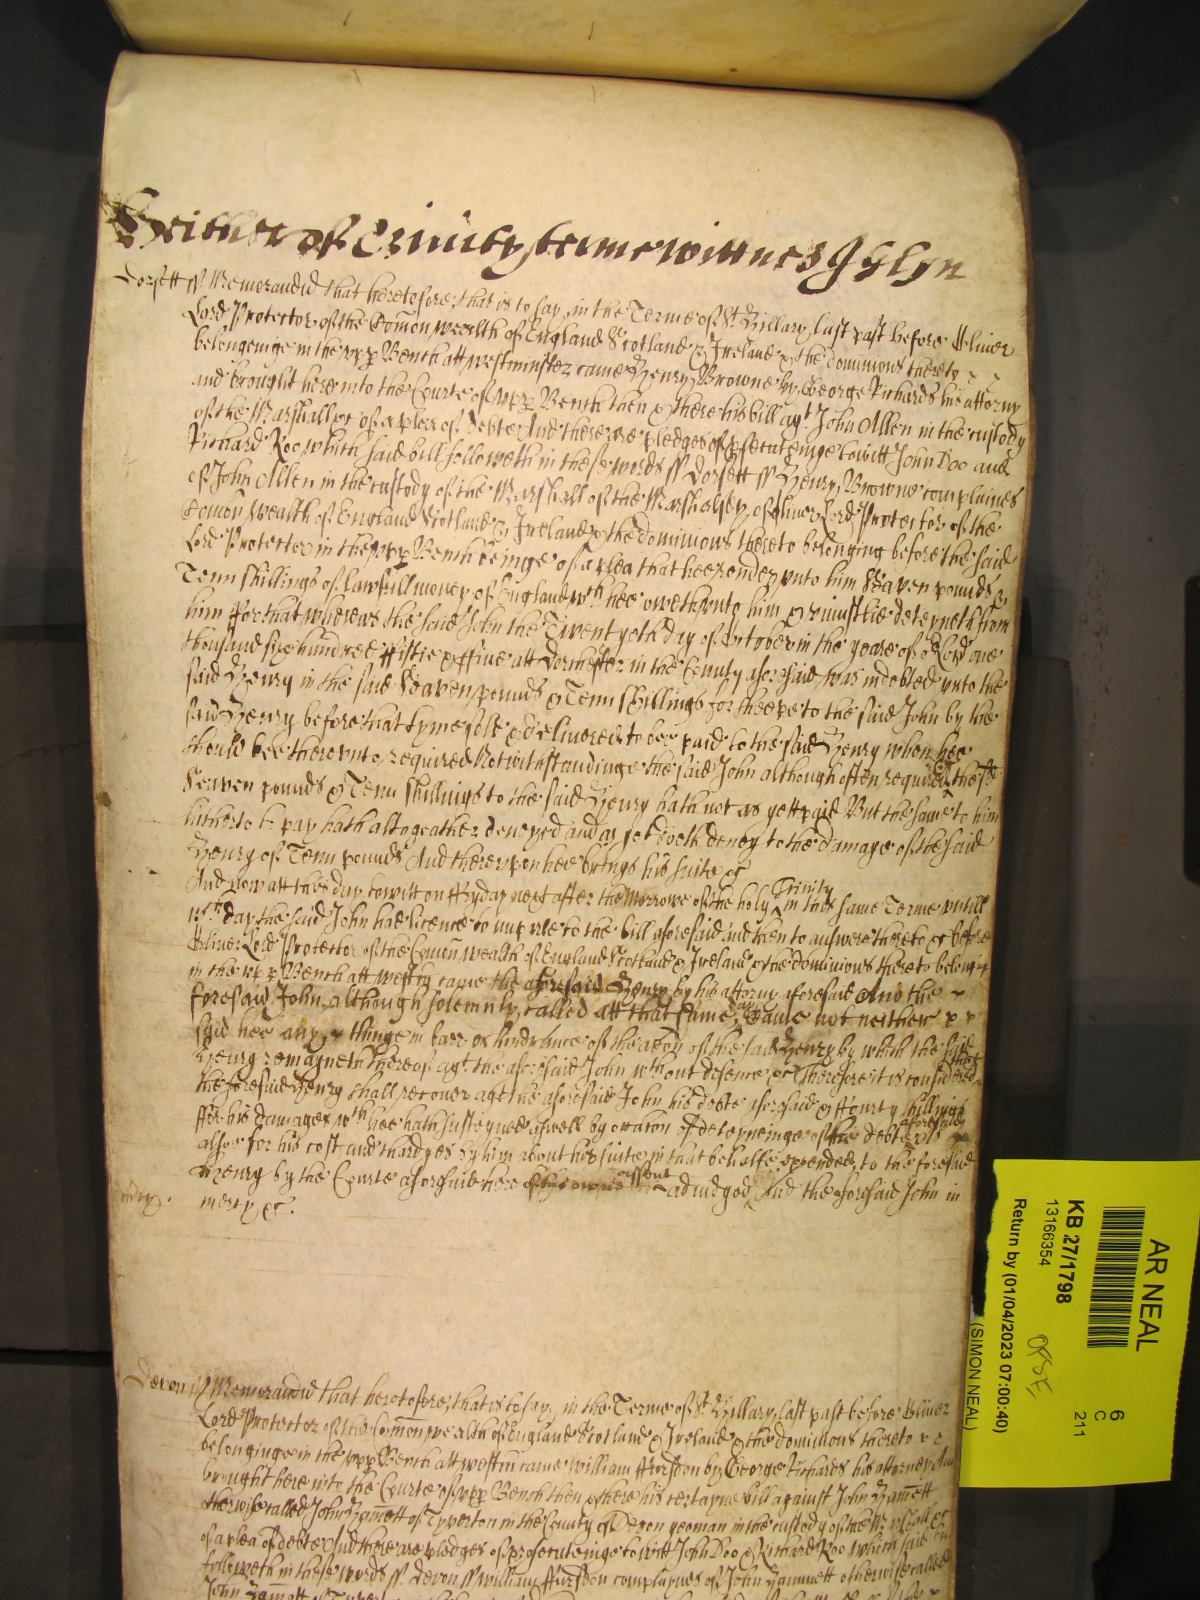 Further of Trinity terme wittnes Glyn
Dorsett ss Memorandum that heretofore, that is to say, in the Terme of St. Hillary last past before Oliver
Lord Protector of the Comon wealth of England Scotland & Ireland & the dominions thereto
belonginge in the upp Bench att westminster came Henry Browne by George Richards his attorny
and brought here into the Courte of upp Bench then & there his bill agt John Allen in the custody
of the Marshall &c of a plea of debte And there are pledges of psecutinge towitt John Doo and
Richard Roo which said bill followeth in these words ss Dorsett ss Henry Browne complaines
of John Allen in the custody of the Marshall of the Marshalsey of Oliver Lord Protector of the
Comon wealth of England Scotland & Ireland & the dominions thereto belonging before the said
Lord Protector in the upp Bench beinge of a plea that hee render unto him Seaven pounds &
Tenn shillings of lawfull money of England wch hee oweth unto him & uniustlie deteyneth from
him ffor that whereas the said John the Twentyeth day of October in the yeare of or Lord one
thousand six hundred ffiftie & ffive att Dorchester in the County aforesaid was indebted unto the
said Henry in the said Seaven pounds & Tenn shillings for sheepe to the said John by the
said Henry before that tyme sold & delivered to bee paid to the said Henry when hee
should bee thereunto required Notwithstandinge the said John although often required these
Seaven pounds & Tenn shillings to the said Henry hath not as yett paid But the same to him
hitherto to pay hath altogeather denyed and as yet doth deney to the damage of the said
Henry of Tenn pounds And thereupon hee brings his suite &c
And now att this day towitt on ffryday next after the Morrowe of the holy Trinity in this same Terme untill
wch day the said John had licence to imparle to the bill aforesaid and then to answere thereto &c before
Oliver Lord Protector of the Comon wealth of England Scotland & Ireland & the dominions thereto belonging
in the upp Bench att westm came the aforesaid Henry by his attorny aforesaid And the
foresaid John, although solemnly called att that same day came not neither
said hee any thinge in barr or hindrance of the accon of the said Henry by which the said
Henry remayneth thereof agt the aforesaid John without defence &c Therefore it is considered that
the foresaid Henry shall recover agt the aforesaid John his debte aforesaid & ffourty shillings
ffor his damages wch hee hath susteyned aswell by occasion of deteyneinge of the debte aforesaid as
alsoe for his costs and chardges by him about his suite in that behalfe expended, to the foresaid
Henry by the Courte aforesaid here of his owne assent adiudged, And the aforesaid John in
mercy &c.
mercy.
Devon ss Memorandum that heretofore, that is to say, in the Terme of St. Hillary last past before Oliver
Lord Protector of the Common wealth of England Scotland & Ireland & the dominions thereto
belonginge in the upp Bench att westm came William ffursdon by George Richards his attorney And
brought here into the Courte of upp Bench then & there his certayne bill against John Hamett
otherwise called John Hamett of Tyverton in the County of Devon yeoman in the custody of the Marshall &c
of a plea of debte And there are pledges of prosecuteinge towitt John Doo & Richard Roo which said
followeth in these words ss. Devon ss William ffursdon complaynes of John Hammett otherwise called
John Hamett of
AR NEAL
KB 27/1798
13166354
Return by (01/04/2023 07:00:40)
(SIMON NEAL)
6
C
211